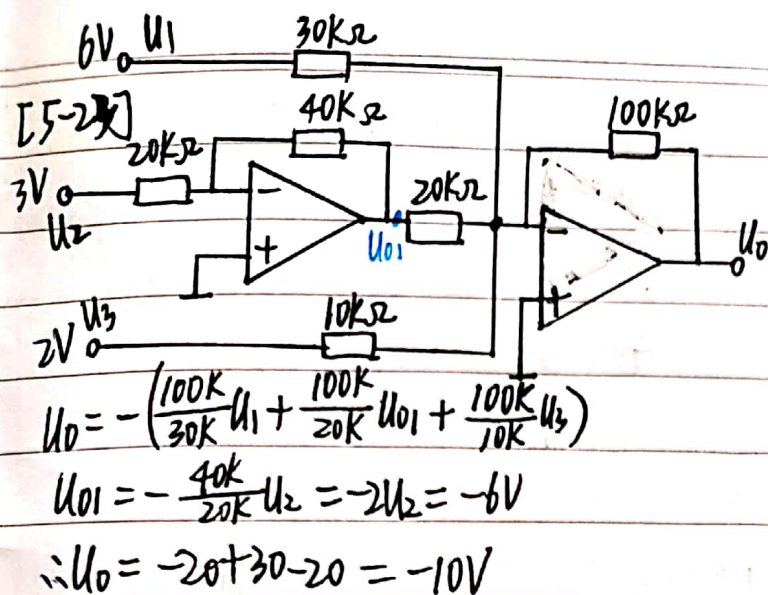 6V U1 30KΩ
[5-2]
40KΩ 100KΩ
20KΩ
3V 20KΩ
U2 - - U0
+ U01 +
U3 10KΩ
2V
U0 = -(100K/30K U1 + 100K/20K U01 + 100K/10K U3)
U01 = - 40K/20K U2 = -2U2 = -6V
∴U0 = -20+30-20 = -10V